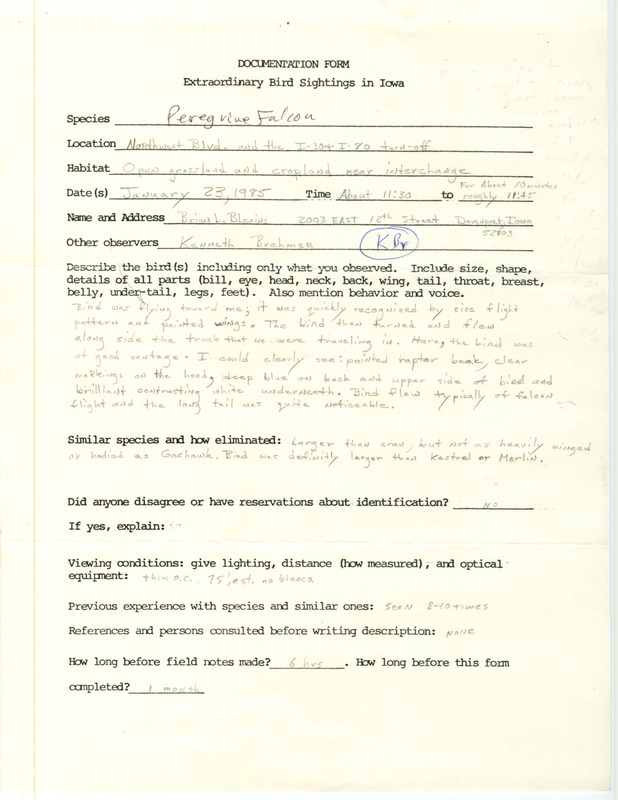 DOCUMENTATION FORM
Extraordinary Bird Sightings in Iowa
Species Peregrine Falcon
Location Northwest Blvd. and the I-80 turn-off
Habitat Open grassland and cropland near interchange
Date(s) January 23, 1985 Time About 11:30 to roughly 11:45
For About 10 minutes
Name and Address Brian L. Blevins 2003 EAST 12th Street Davenport, Iowa
52803
Other observers Kenneth Brehmer KBr
Describe the bird(s) including only what you observed. Include size, shape,
details of all parts (bill, eye, head, neck, back, wing, tail, throat, breast,
belly, under-tail, legs, feet). Also mention behavior and voice.
Bird was flying toward me; it was quickly recognized by size flight
pattern and pointed wings. The bird then turned and flew
along side the truck that we were traveling in. Here, the bird was
at good ventage. I could clearly see: pointed raptor beak, clear
markings on the head, deep blue on back and upper side of bird and
brilliant contrasting white underneath. Bird flew typically of falcon
flight and the long tail was quite noticeable.
Similar species and how eliminated: Larger than crow, but not as heavily winged
or bodied as Goshawk. Bird was definitly larger than Kestrel or Merlin.
Did anyone disagree or have reservations about identification? NO
If yes, explain:
Viewing conditions: give lighting, distance (how measured), and optical
equipment: thin o.c. 75', est. no binocs
Previous experience with species and similar ones: seen 8-10 times
References and persons consulted before writing description: NONE
How long before field notes made? 6 hrs. How long before this form
completed? 1 month